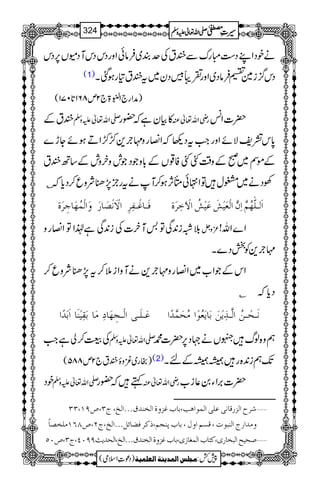 سیرتِ مصطفی صلی اللہ تعالیٰ علیہ وسلم 324
نے خود اپنے دستِ مبارک سے خندق کی حد بندی فرمائی اور دس دس آدمیوں پر دس
دس گز زمین تقسیم فرما دی اور تقریباً بیس دن میں یہ خندق تیار ہو گئی۔ (1)
(مدارج النبوۃ ج۲ ص۱۶۸ تا ۱۷۰)
حضرت انس رضی اللہ تعالیٰ عنہ کا بیان ہے کہ حضور صلی اللہ تعالیٰ علیہ وسلم خندق کے
پاس تشریف لائے اور جب یہ دیکھا کہ انصار و مہاجرین کڑ کڑاتے ہوئے جاڑے
کے موسم میں صبح کے وقت کئی کئی فاقوں کے باوجود جوش و خروش کے ساتھ خندق
کھودنے میں مشغول ہیں تو انتہائی متاثر ہو کر آپ نے یہ رجز پڑھنا شروع کر دیا کہ ؎
اَللّٰھُمَّ اِنَّ الْعَیْشَ عَیْشُ الْاٰخِرَۃِ فَاغْفِرِ الْاَنْصَارَ وَالْمُھَاجِرَۃِ
اے اللہ! عزوجل بلا شبہ زندگی تو بس آخرت کی زندگی ہے لہٰذا تو انصار و
مہاجرین کو بخش دے۔
اس کے جواب میں انصار و مہاجرین نے آواز ملا کر یہ پڑھنا شروع کر
دیا کہ ؎
نَحْنُ الَّذِیْنَ بَایَعُوْا مُحَمَّدًا عَلَی الْجِھَادِ مَا بَقِیْنَا اَبَدًا
ہم وہ لوگ ہیں جنہوں نے جہاد پر حضرت محمد صلی اللہ تعالیٰ علیہ وسلم کی بیعت کر لی ہے جب
تک ہم زندہ رہیں ہمیشہ ہمیشہ کے لئے۔ (2) (بخاری غزوۂ خندق ج۲ ص۵۸۸)
حضرت براء بن عازب رضی اللہ تعالیٰ عنہ کہتے ہیں کہ حضور صلی اللہ تعالیٰ علیہ وسلم خود
شرح الزرقانی علی المواھب، باب غزوۃ الخندق...الخ، ج۳، ص۱۹، ۳۳
ومدارج النبوت، قسم اول، باب پنجم، ذکر فضائل...الخ، ج۲، ص۱۶۸ ملخصاً
صحیح البخاری، کتاب المغازی، باب غزوۃ الخندق...الخ، الحدیث:۴۰۹۹، ج۳، ص۵۰
پیش کش: مجلس المدینۃ العلمیۃ (دعوتِ اسلامی)